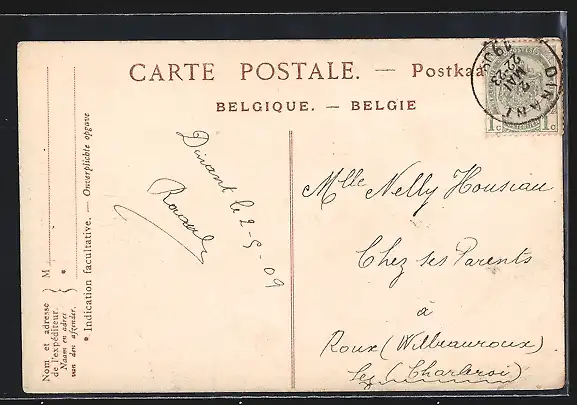 CARTE POSTALE. — Postkaa
BELGIQUE. — BELGIE
DINANT
22-23
2
MAI
1909
1c 1c
Dinant le 2-5-09
Mlle Nelly Housiau
Chez ses Parents
à
Roux (Wilbeauroux)
Lez (Charleroi)
Nom et adresse
de l'expéditeur.
Naam en adres
van den afzender.
} M
} *
* Indication facultative. — Onverplichte opgave